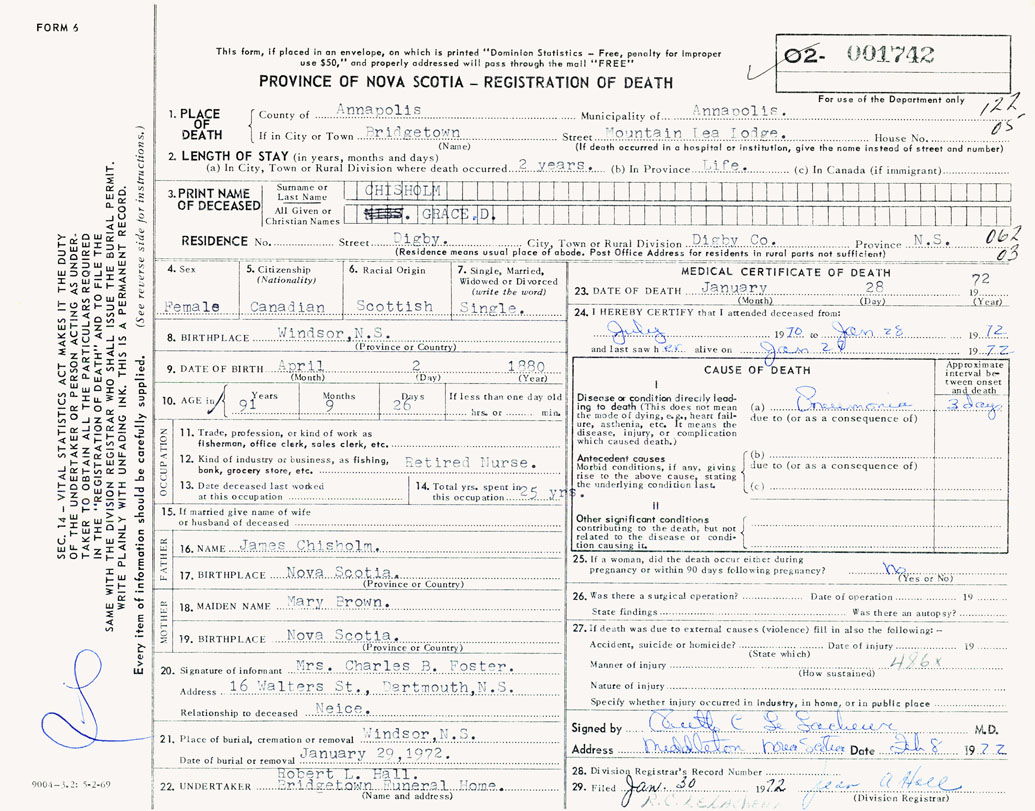 FORM 6
This form, if placed in an envelope, on which is printed "Dominion Statistics – Free, penalty for improper
use $50," and properly addressed will pass through the mail "FREE"
PROVINCE OF NOVA SCOTIA – REGISTRATION OF DEATH
02- 001742
For use of the Department only
122
05.
1. PLACE OF DEATH
County of Annapolis Municipality of Annapolis.
If in City or Town Bridgetown Street Mountain Lea Lodge. House No.
(Name) (If death occurred in a hospital or institution, give the name instead of street and number)
2. LENGTH OF STAY (in years, months and days)
(a) In City, Town or Rural Division where death occurred 2 years. (b) In Province Life. (c) In Canada (if immigrant)
3. PRINT NAME OF DECEASED
Surname or Last Name CHISHOLM
All Given or Christian Names MISS. GRACE.D.
RESIDENCE No. Street Digby. City, Town or Rural Division Digby Co. Province N.S.
(Residence means usual place of abode. Post Office Address for residents in rural parts not sufficient)
062
03
4. Sex
Female
5. Citizenship
(Nationality)
Canadian
6. Racial Origin
Scottish
7. Single, Married,
Widowed or Divorced
(write the word)
Single.
8. BIRTHPLACE Windsor,N.S.
(Province or Country)
9. DATE OF BIRTH April 2 1880
(Month) (Day) (Year)
10. AGE in Years Months Days If less than one day old
91 9 26 hrs. or min.
OCCUPATION
11. Trade, profession, or kind of work as
fisherman, office clerk, sales clerk, etc.
12. Kind of industry or business, as fishing,
bank, grocery store, etc. Retired Nurse.
13. Date deceased last worked
at this occupation
14. Total yrs. spent in
this occupation 25 yrs.
15. If married give name of wife
or husband of deceased
FATHER
16. NAME James Chisholm.
17. BIRTHPLACE Nova Scotia.
(Province or Country)
MOTHER
18. MAIDEN NAME Mary Brown.
19. BIRTHPLACE Nova Scotia.
(Province or Country)
20. Signature of informant Mrs. Charles B. Foster.
Address 16 Walters St., Dartmouth,N.S.
Relationship to deceased Neice.
21. Place of burial, cremation or removal Windsor,N.S.
Date of burial or removal January 29,1972.
Robert L. Hall.
22. UNDERTAKER Bridgetown Funeral Home.
(Name and address)
MEDICAL CERTIFICATE OF DEATH
23. DATE OF DEATH January 28 19 72
(Month) (Day) (Year)
24. I HEREBY CERTIFY that I attended deceased from:
July 1970 to Jan 28 1972
and last saw h er alive on Jan 28 1972
CAUSE OF DEATH
Approximate
interval be-
tween onset
and death
I
Disease or condition directly lead-
ing to death (This does not mean
the mode of dying, e.g., heart fail-
ure, asthenia, etc. It means the
disease, injury, or complication
which caused death.)
(a) Pneumonia 3 days
due to (or as a consequence of)
Antecedent causes
Morbid conditions, if any, giving
rise to the above cause, stating
the underlying condition last.
(b)
due to (or as a consequence of)
(c)
II
Other significant conditions
contributing to the death, but not
related to the disease or condi-
tion causing it.
25. If a woman, did the death occur either during
pregnancy or within 90 days following pregnancy? no
(Yes or No)
26. Was there a surgical operation? Date of operation 19
State findings Was there an autopsy?
27. If death was due to external causes (violence) fill in also the following: –
Accident, suicide or homicide? Date of injury 19
(State which)
Manner of injury 486x
(How sustained)
Nature of injury
Specify whether injury occurred in industry, in home, or in public place
Signed by M.D.
Address Middleton Nova Scotia Date Feb 8 1972
28. Division Registrar's Record Number
29. Filed Jan. 30 1972 Jean A Hall
(Division Registrar)
SEC. 14 – VITAL STATISTICS ACT MAKES IT THE DUTY
OF THE UNDERTAKER OR PERSON ACTING AS UNDER-
TAKER TO OBTAIN ALL THE PARTICULARS REQUIRED
IN THE "REGISTRATION OF DEATH" AND TO FILE THE
SAME WITH THE DIVISION REGISTRAR WHO SHALL ISSUE THE BURIAL PERMIT.
WRITE PLAINLY WITH UNFADING INK. THIS IS A PERMANENT RECORD.
Every item of information should be carefully supplied. (See reverse side for instructions.)
9004-3.2: 5-2-69